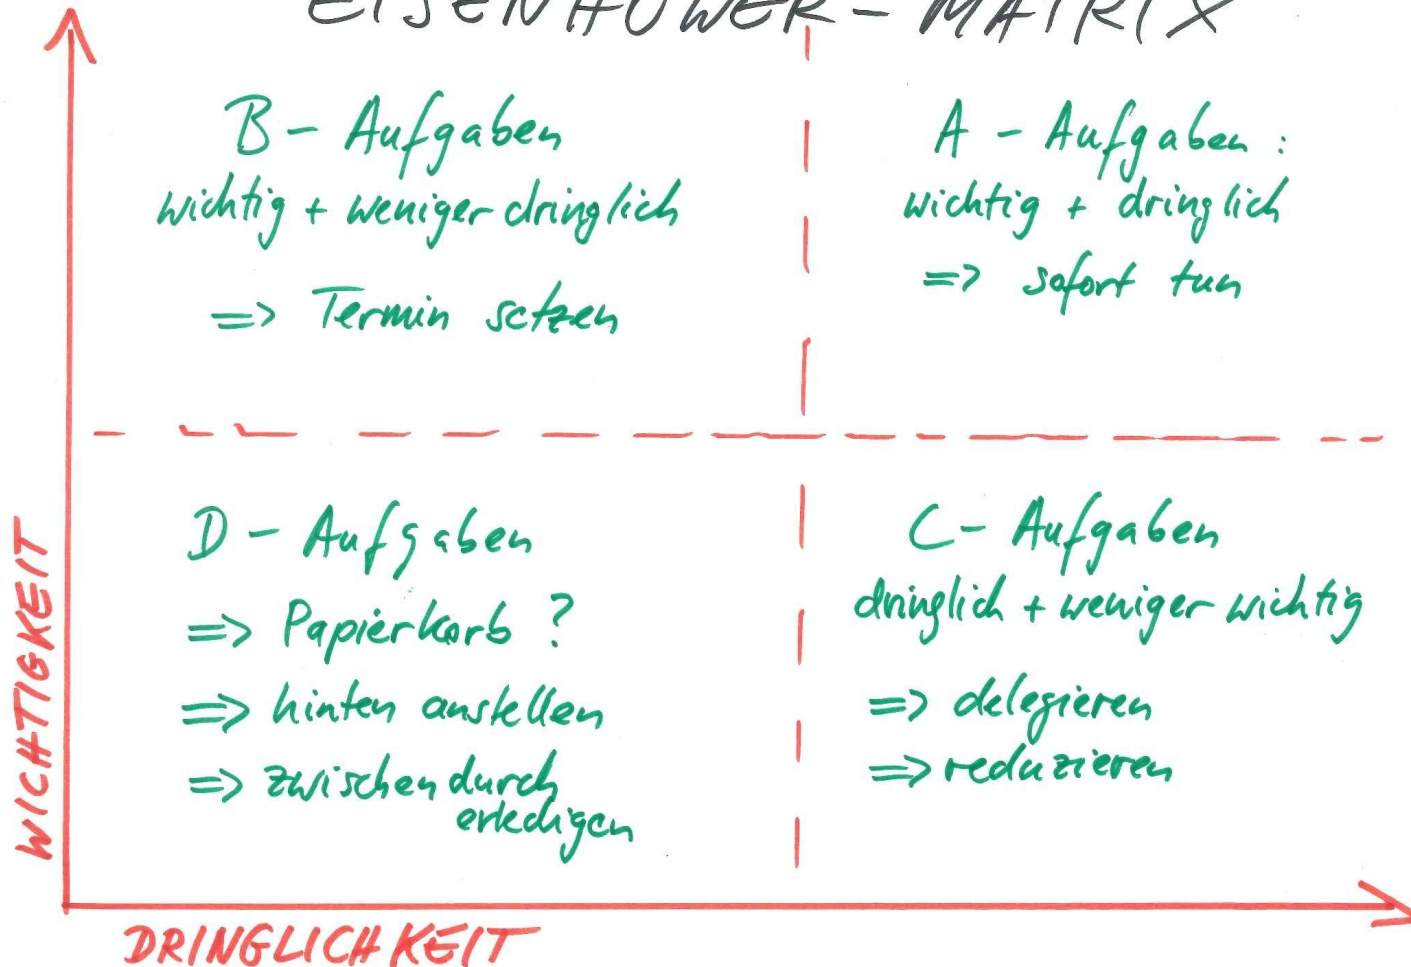 EISENHOWER-MATRIX
B - Aufgaben
wichtig + weniger dringlich
=> Termin setzen
A - Aufgaben:
wichtig + dringlich
=> sofort tun
D - Aufgaben
=> Papierkorb?
=> hinten anstellen
=> zwischendurch
erledigen
C - Aufgaben
dringlich + weniger wichtig
=> delegieren
=> reduzieren
WICHTIGKEIT
DRINGLICHKEIT